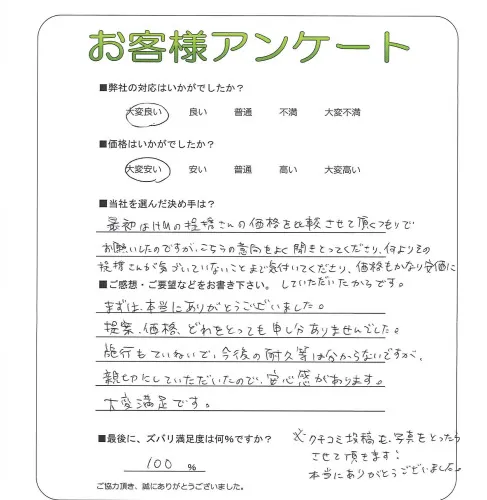 お客様アンケート
■弊社の対応はいかがでしたか？
大変良い 良い 普通 不満 大変不満
■価格はいかがでしたか？
大変安い 安い 普通 高い 大変高い
■当社を選んだ決め手は？
最初はHMの提携さんの価格を比較させて頂くつもりで
お願いしたのですが、こちらの意向をよく聞きとってくださり、何よりその
提携さんが気づいていないことまで気付いてくださり、価格もかなり安価に
していただいたからです。
■ご感想・ご要望などをお書き下さい。
まずは、本当にありがとうございました。
提案、価格、どれをとっても申し分ありませんでした。
施行もていねいで、今後の耐久等は分からないですが、
親切にしていただいたので、安心感があります。
大変満足です。
■最後に、ズバリ満足度は何%ですか？
100 %
ご協力頂き、誠にありがとうございました。
※クチコミ投稿も、写真をとったら
させて頂きます！
本当にありがとうございました。